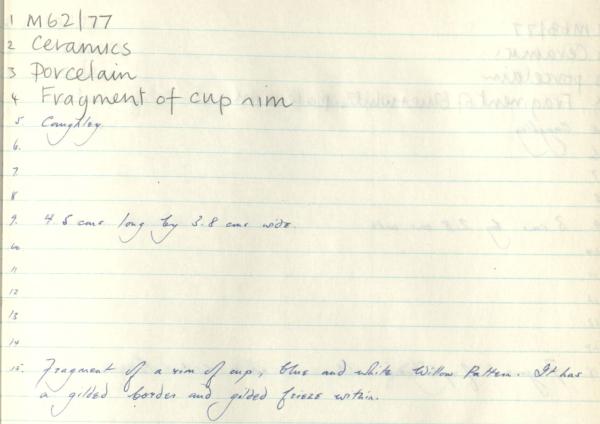 1 M62/77
2 Ceramics
3 Porcelain
4 Fragment of cup rim
5 Caughley.
6.
7.
8
9. 4.5 cms long by 3.8 cms wide.
10
11
12
13
14
15. Fragment of a rim of cup, blue and white Willow Pattern. It has
a gilded border and gilded frieze within.